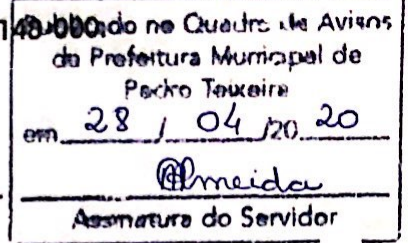 148-000
Publicado no Quadro de Avisos
da Prefeitura Municipal de
Pedro Teixeira
em 28 / 04 /20 20
Almeida
Assinatura do Servidor